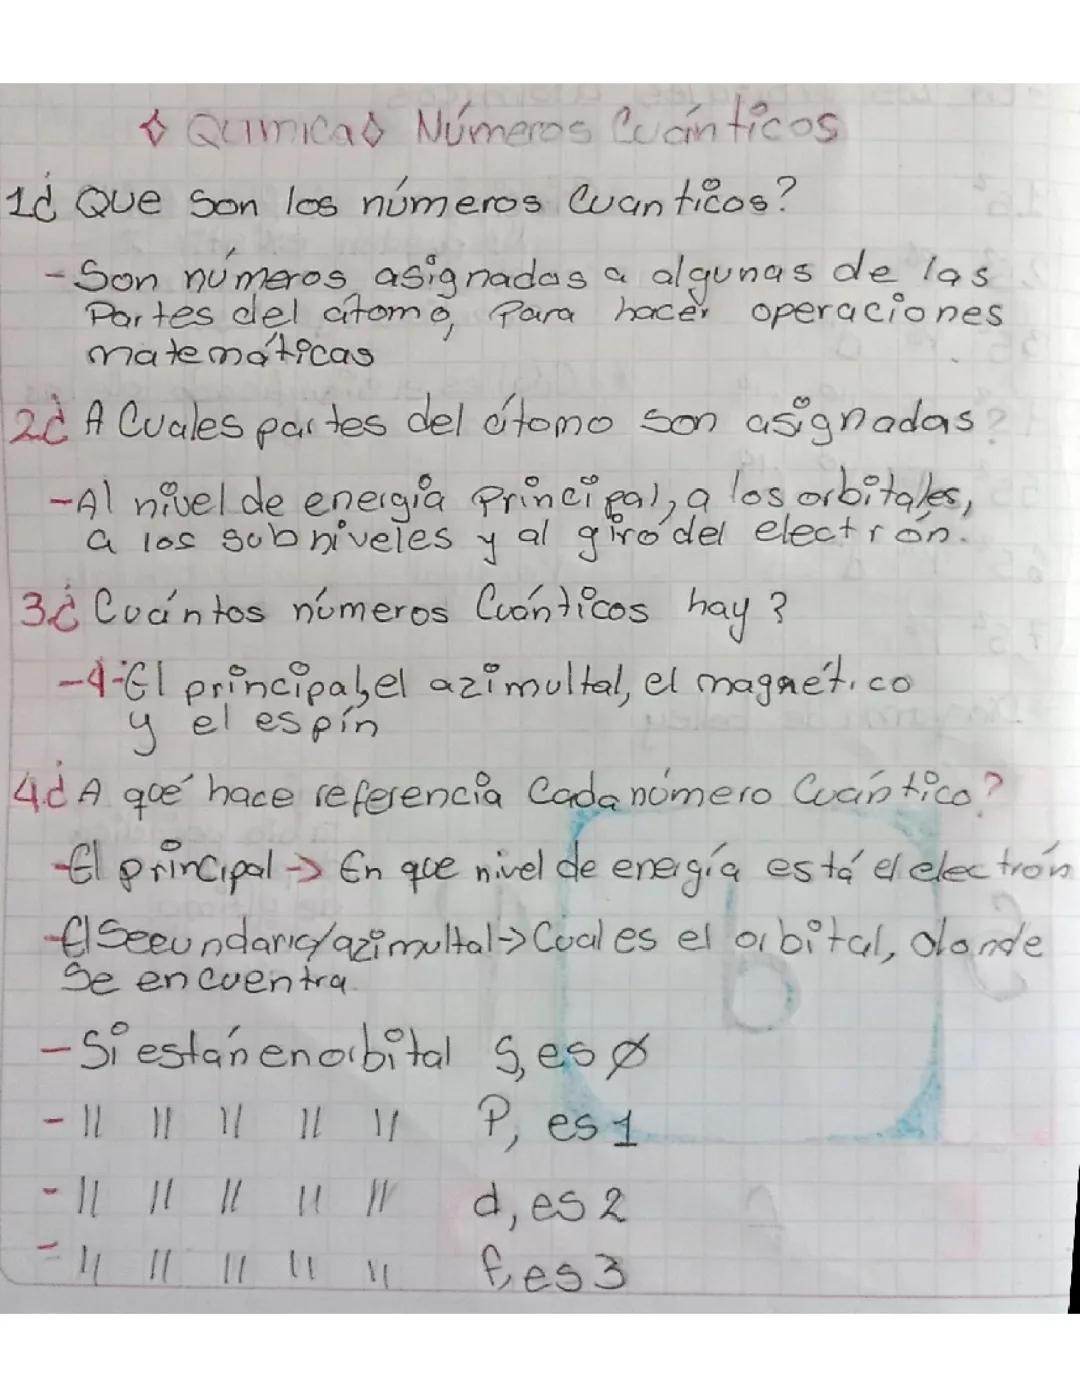 ◊ Quimica ◊ Números Cuánticos
1¿ Que son los números Cuanticos?
- Son números asignadas a algunas de las
Partes del átomo, Para hacer operaciones
matemáticas
2¿ A Cuales partes del átomo son asignadas?
- Al nivel de energía Principal, a los orbitales,
a los subniveles y al giro del electrón.
3.¿ Cuántos números Cuánticos hay?
- 4- El principal, el azimultal, el magnético
y el espín
4.¿ A qué hace referencia Cada número Cuántico?
- El principal → En que nivel de energía está el electrón
- El Secundario/azimultal → Cual es el orbital, donde
se encuentra
- Si están en orbital S, es Ø
- 11 11 11 11 11 P, es 1
- 11 11 11 11 11 d, es 2
- 11 11 11 11 11 f, es 3